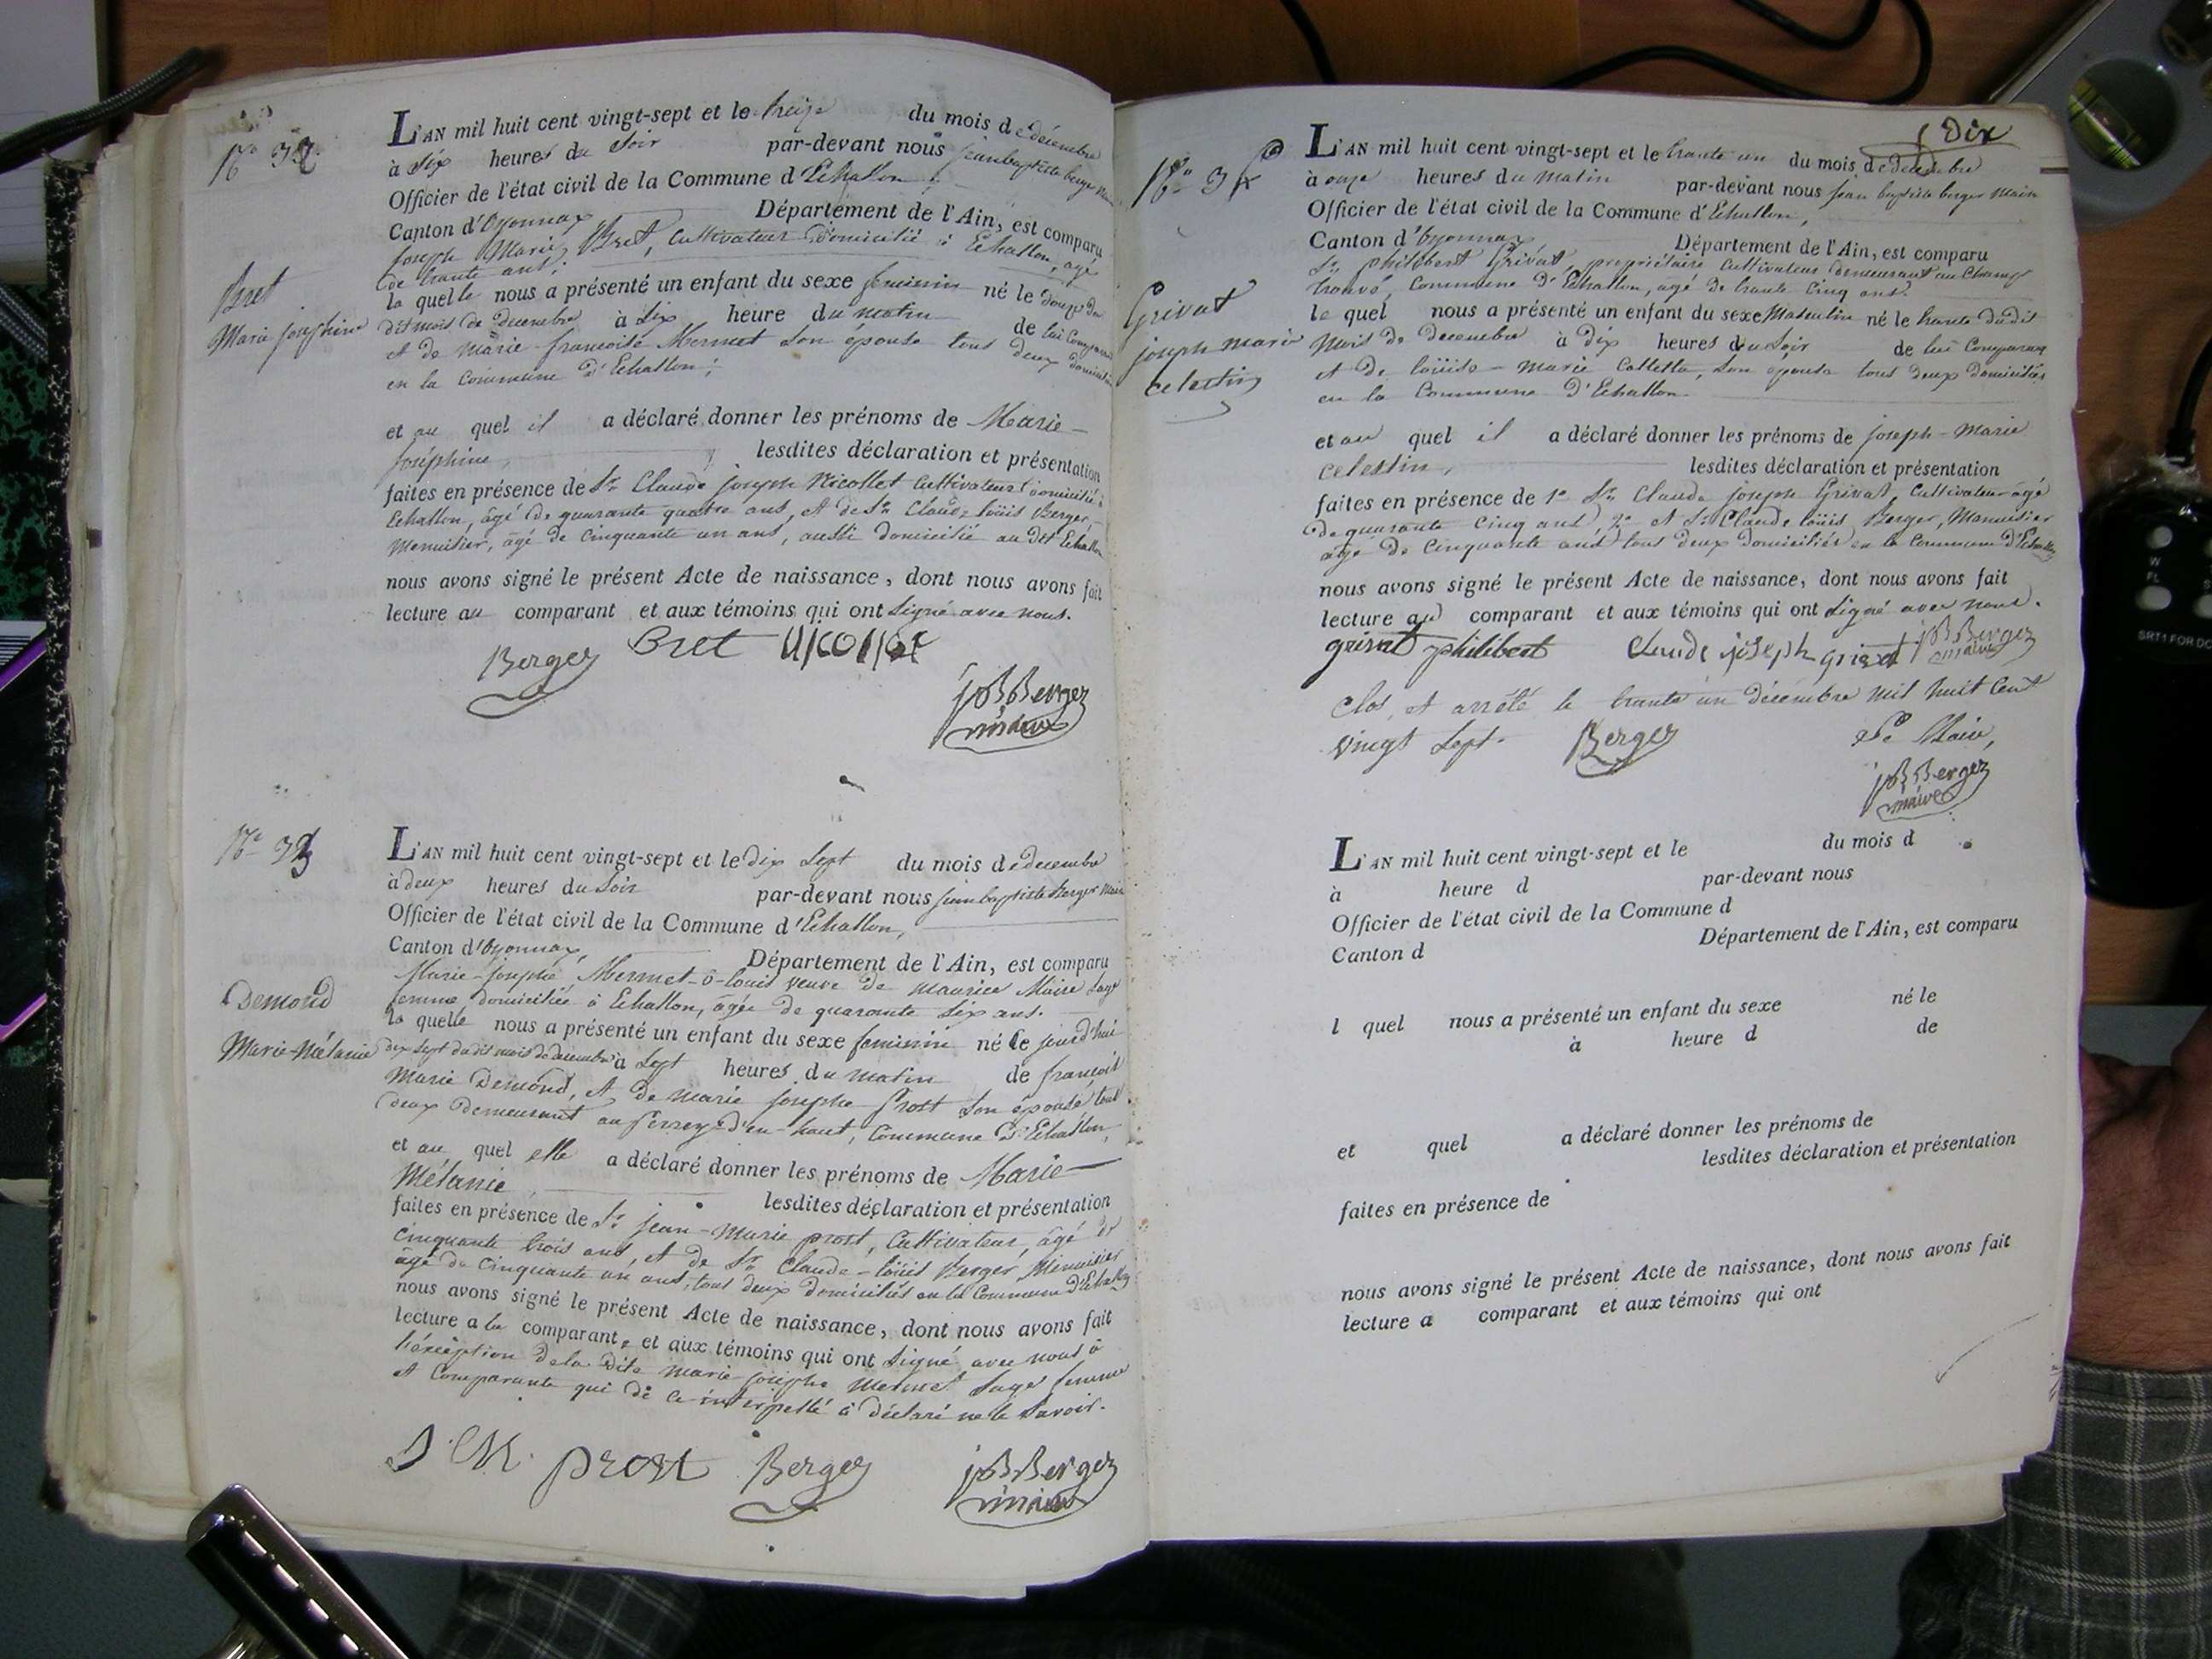 N° 32
L'AN mil huit cent vingt-sept et le treize du mois de décembre
à six heures du soir par-devant nous jean baptiste berger Maire
Officier de l'état civil de la Commune d'Echallon,
Canton d'Oyonnax Département de l'Ain, est comparu
joseph Marie Bret, cultivateur domicilié à Echallon, âgé
de trente ans,
Bret
Marie josephine
la quelle nous a présenté un enfant du sexe feminin né le douze du
dit mois de decembre à dix heure du matin de lui Comparant
et de marie françoise Mermet son épouse tous deux domiciliés
en la commune d'Echallon,
et au quel il a déclaré donner les prénoms de Marie-
joséphine, lesdites déclaration et présentation
faites en présence de Sr Claude joseph Nicollet cultivateur domicilié à
Echallon, âgé de quarante quatre ans, et de Sr Claude loüis Berger,
Menuisier, âgé de cinquante un ans, aussi domicilié au dit Echallon
nous avons signé le présent Acte de naissance, dont nous avons fait
lecture au comparant et aux témoins qui ont signé avec nous.
Berger Bret Nicollet
jB Berger
maire
N° 33
L'AN mil huit cent vingt-sept et le dix sept du mois de decembre
à deux heures du soir par-devant nous jean baptiste Berger Maire
Officier de l'état civil de la Commune d'Echallon,
Canton d'Oyonnax, Département de l'Ain, est comparu
Marie-josephe Mermet-ô-louis veuve de maurice Maire sage
femme domiciliée à Echallon, âgée de quarante six ans.
Demond
Marie-Mélanie
la quelle nous a présenté un enfant du sexe feminin né le jourd'hui
dix sept du dit mois de decembre à sept heures du matin de françois
Marie Demond, et de marie josephe Prost son épouse tous
deux demeurant au Serrey d'en-haut, Commune d'Echallon,
et au quel elle a déclaré donner les prénoms de Marie-
Mélanie lesdites déclaration et présentation
faites en présence de Sr jean-Marie prost, cultivateur, âgé de
cinquante trois ans, et de Sr Claude-loüis Berger Menuisier
âgé de cinquante un ans, tous deux domiciliés en la Commune d'Echallon
nous avons signé le présent Acte de naissance, dont nous avons fait
lecture a la comparante et aux témoins qui ont signé avec nous à
l'éxception de la dite marie-josephe Mermet sage femme
et Comparante qui de ce interpellé à déclaré ne le savoir.
J. M. prost Berger jB Berger
maire
Dix
N° 34
L'AN mil huit cent vingt-sept et le trente un du mois de decembre
à onze heures du matin par-devant nous jean baptiste berger Maire
Officier de l'état civil de la Commune d'Echallon,
Canton d'Oyonnax Département de l'Ain, est comparu
Sr philibert Grivat, propriétaire cultivateur demeurant au Champ
trouvé, commune d'Echallon, agé de trente cinq ans.
Grivat
joseph marie
celestin
le quel nous a présenté un enfant du sexe Masculin né le trente dudit
mois de decembre à dix heures du soir de lui Comparant
et de loüise-marie Colletta, son épouse tous deux domiciliés
en la Commune d'Echallon.
et au quel il a déclaré donner les prénoms de joseph-Marie
celestin, lesdites déclaration et présentation
faites en présence de 1° Sr Claude joseph Grivat, Cultivateur âgé
de quarante cinq ans, 2° et Sr Claude loüis Berger, Menuisier
agé de cinquante ans tous deux domiciliés en la Commune d'Echallon
nous avons signé le présent Acte de naissance, dont nous avons fait
lecture au comparant et aux témoins qui ont signé avec nous.
grivat philibert Claude joseph grivat jB Berger
maire
Clos, et arrêté le trente un décembre mil huit cent
vingt sept. Berger Le Maire,
jB Berger
maire
L'AN mil huit cent vingt-sept et le du mois d
à heure d par-devant nous
Officier de l'état civil de la Commune d
Canton d Département de l'Ain, est comparu
l quel nous a présenté un enfant du sexe né le
à heure d de
et quel a déclaré donner les prénoms de
lesdites déclaration et présentation
faites en présence de
nous avons signé le présent Acte de naissance, dont nous avons fait
lecture a comparant et aux témoins qui ont